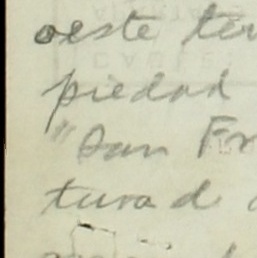 oeste ter
piedad
"San Fr
tura d